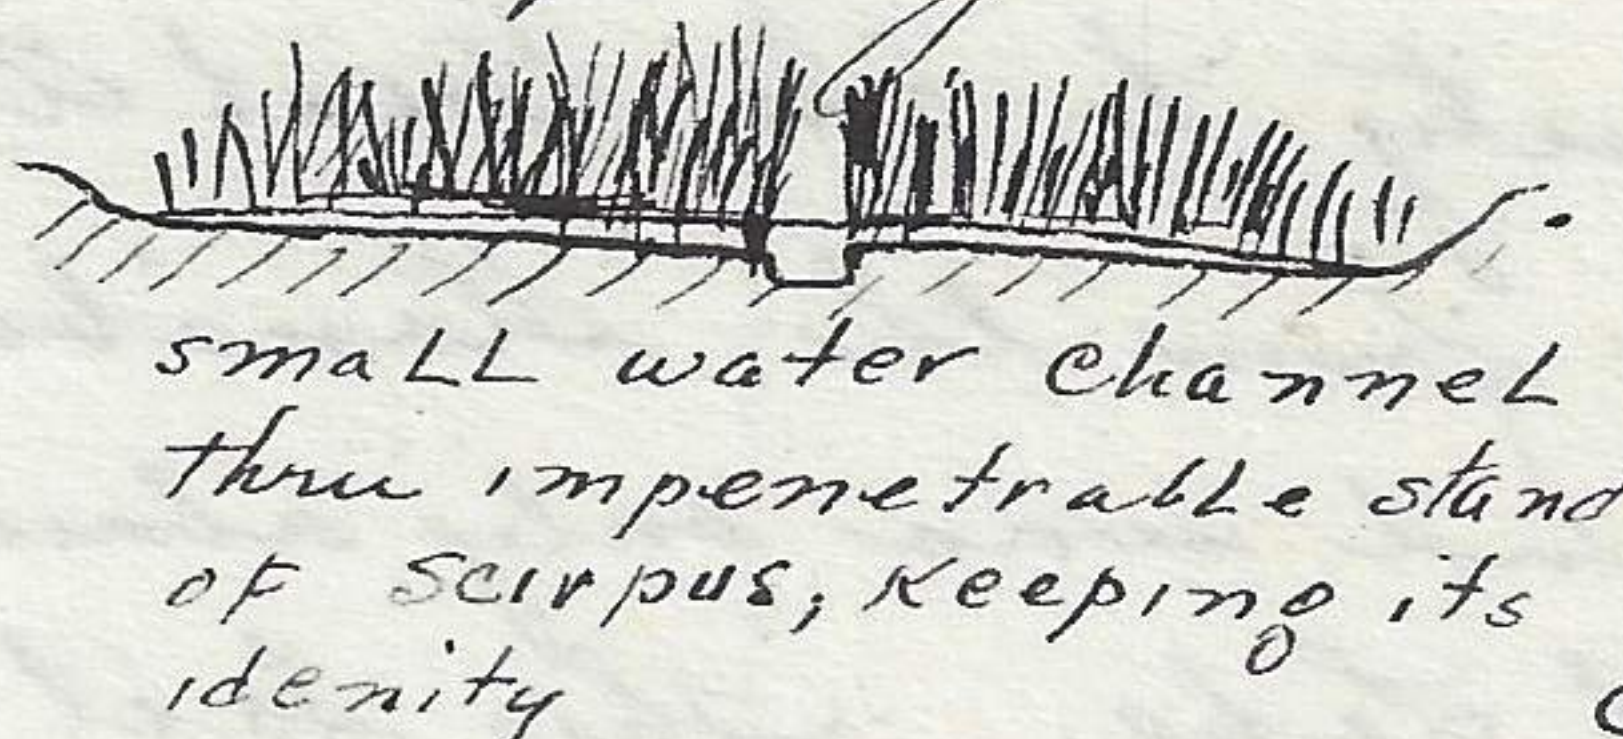 small water channel
thru impenetrable stand
of Scirpus, keeping its
idenity